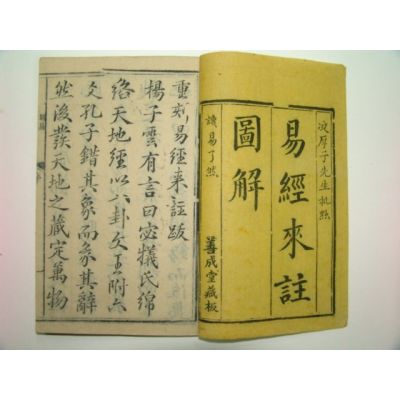 凌厚子先生點
易經來註
圖解
讀易了然
善成堂藏板
重刻易經來註跋
揚子雲有言曰宓犧氏綿
絡天地經以八卦文王附六
爻孔子錯其象而彖其辭
然後發天地之藏定萬物